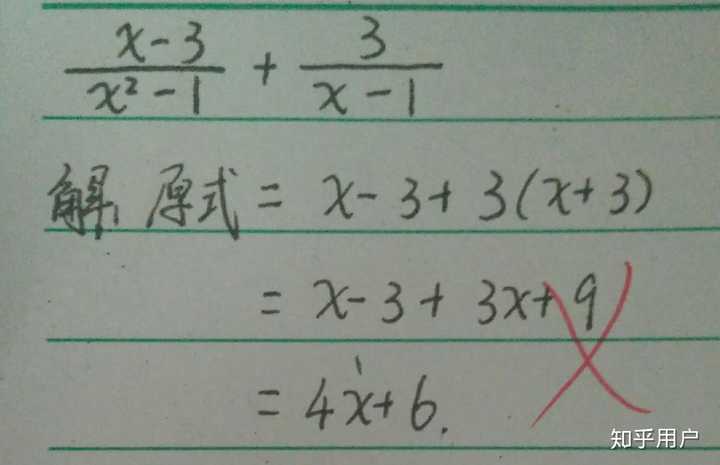 x-3/x²-1 + 3/x-1
解: 原式 = x-3+3(x+3)
= x-3+3x+9
= 4x+6.
知乎用户